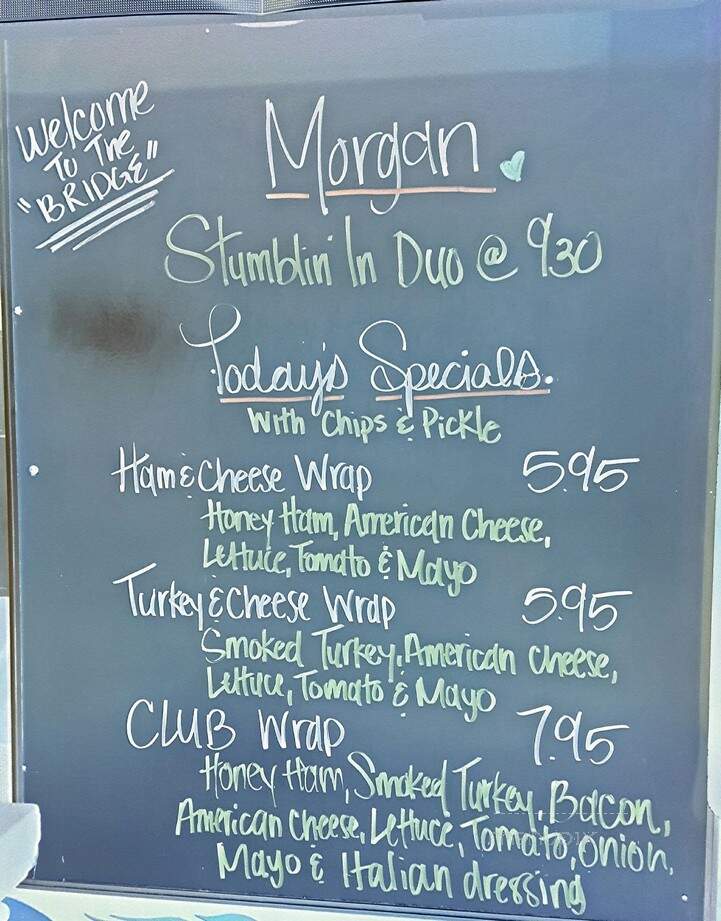 Welcome
To The
"BRIDGE"
Morgan
Stumblin' In Duo @ 930
Today's Specials.
With Chips & Pickle
Ham & Cheese Wrap 5.95
Honey Ham, American Cheese,
Lettuce, Tomato & Mayo
Turkey & Cheese Wrap 5.95
Smoked Turkey, American Cheese,
Lettuce, Tomato & Mayo
CLUB Wrap 7.95
Honey Ham, Smoked Turkey, Bacon,
American Cheese, Lettuce, Tomato, Onion,
Mayo & Italian dressing